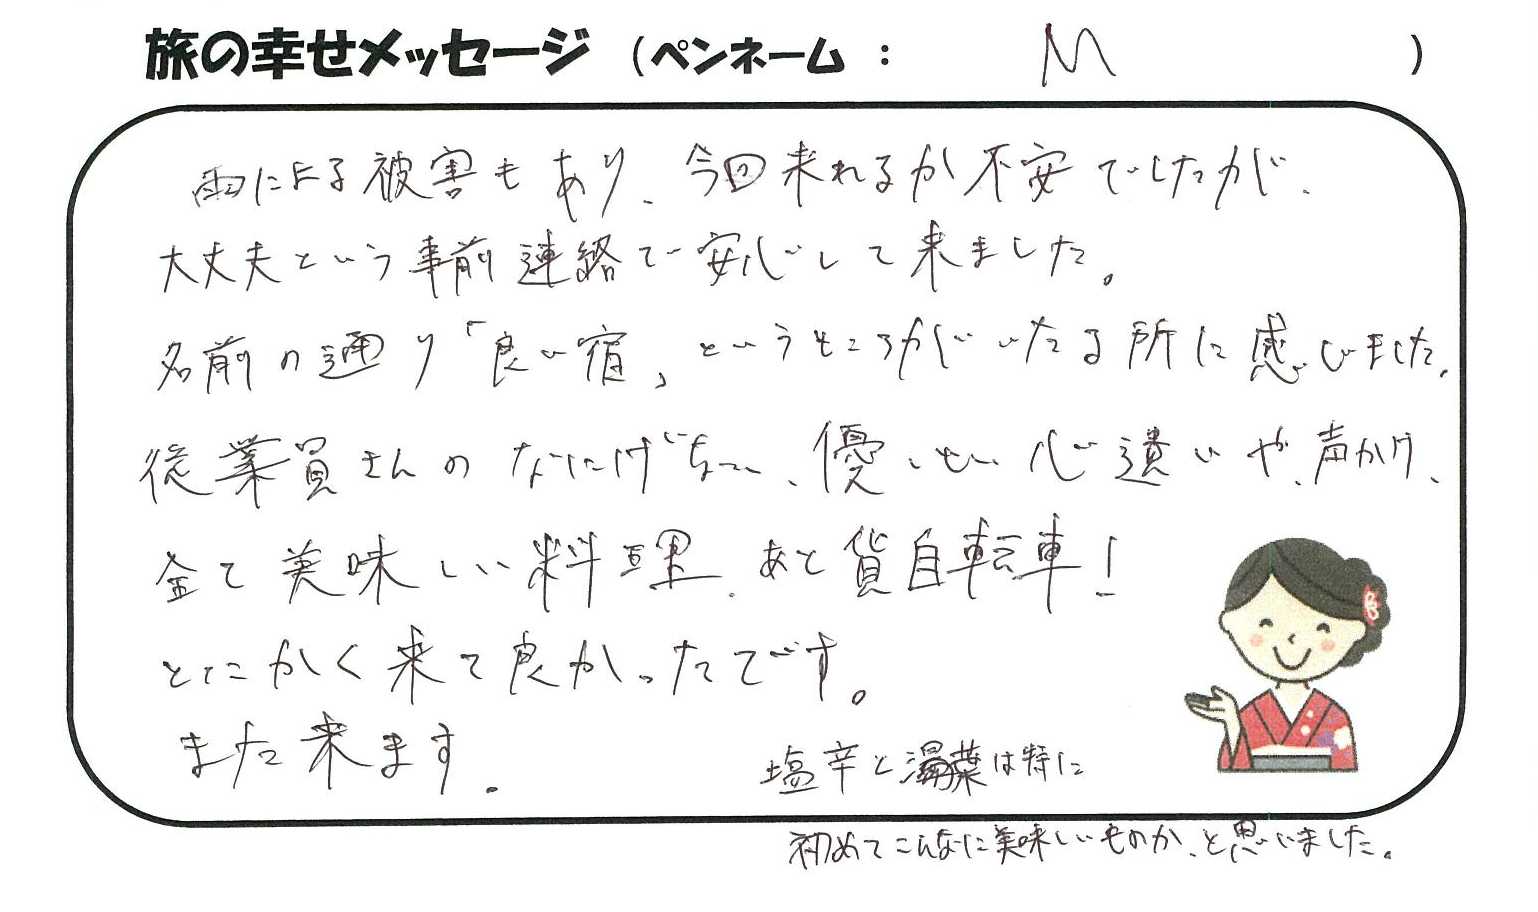 旅の幸せメッセージ (ペンネーム : M )
雨による被害もあり、今回来れるか不安でしたが、
大丈夫という事前連絡で安心して来ました。
名前の通り「良い宿」というところがいたる所に感じました。
従業員さんのなにげない、優しい心遣いや、声かけ、
全て美味しい料理、あと貨自転車!
とにかく来て良かったです。
また来ます。
塩辛と湯葉は特に
初めてこんなに美味しいものか、と思いました。